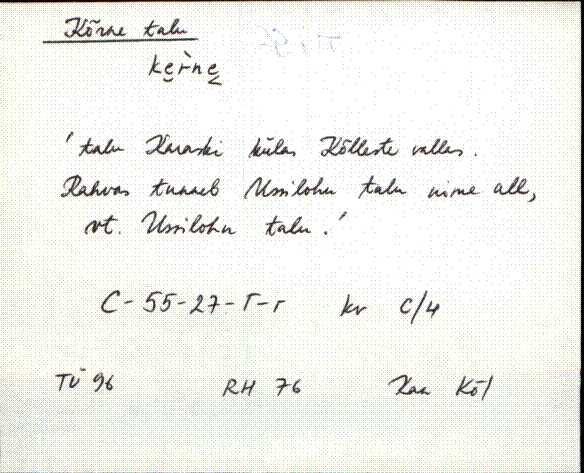 Kõrne talu
ke̬r̀ne̬
'talu Karaski külas Kõlleste vallas.
Rahvas tunneb Ussilohu talu nime all,
vt. Ussilohu talu.'
C-55-27-T-r kv C/4
TÜ 96 RH 76 Kan Kõl